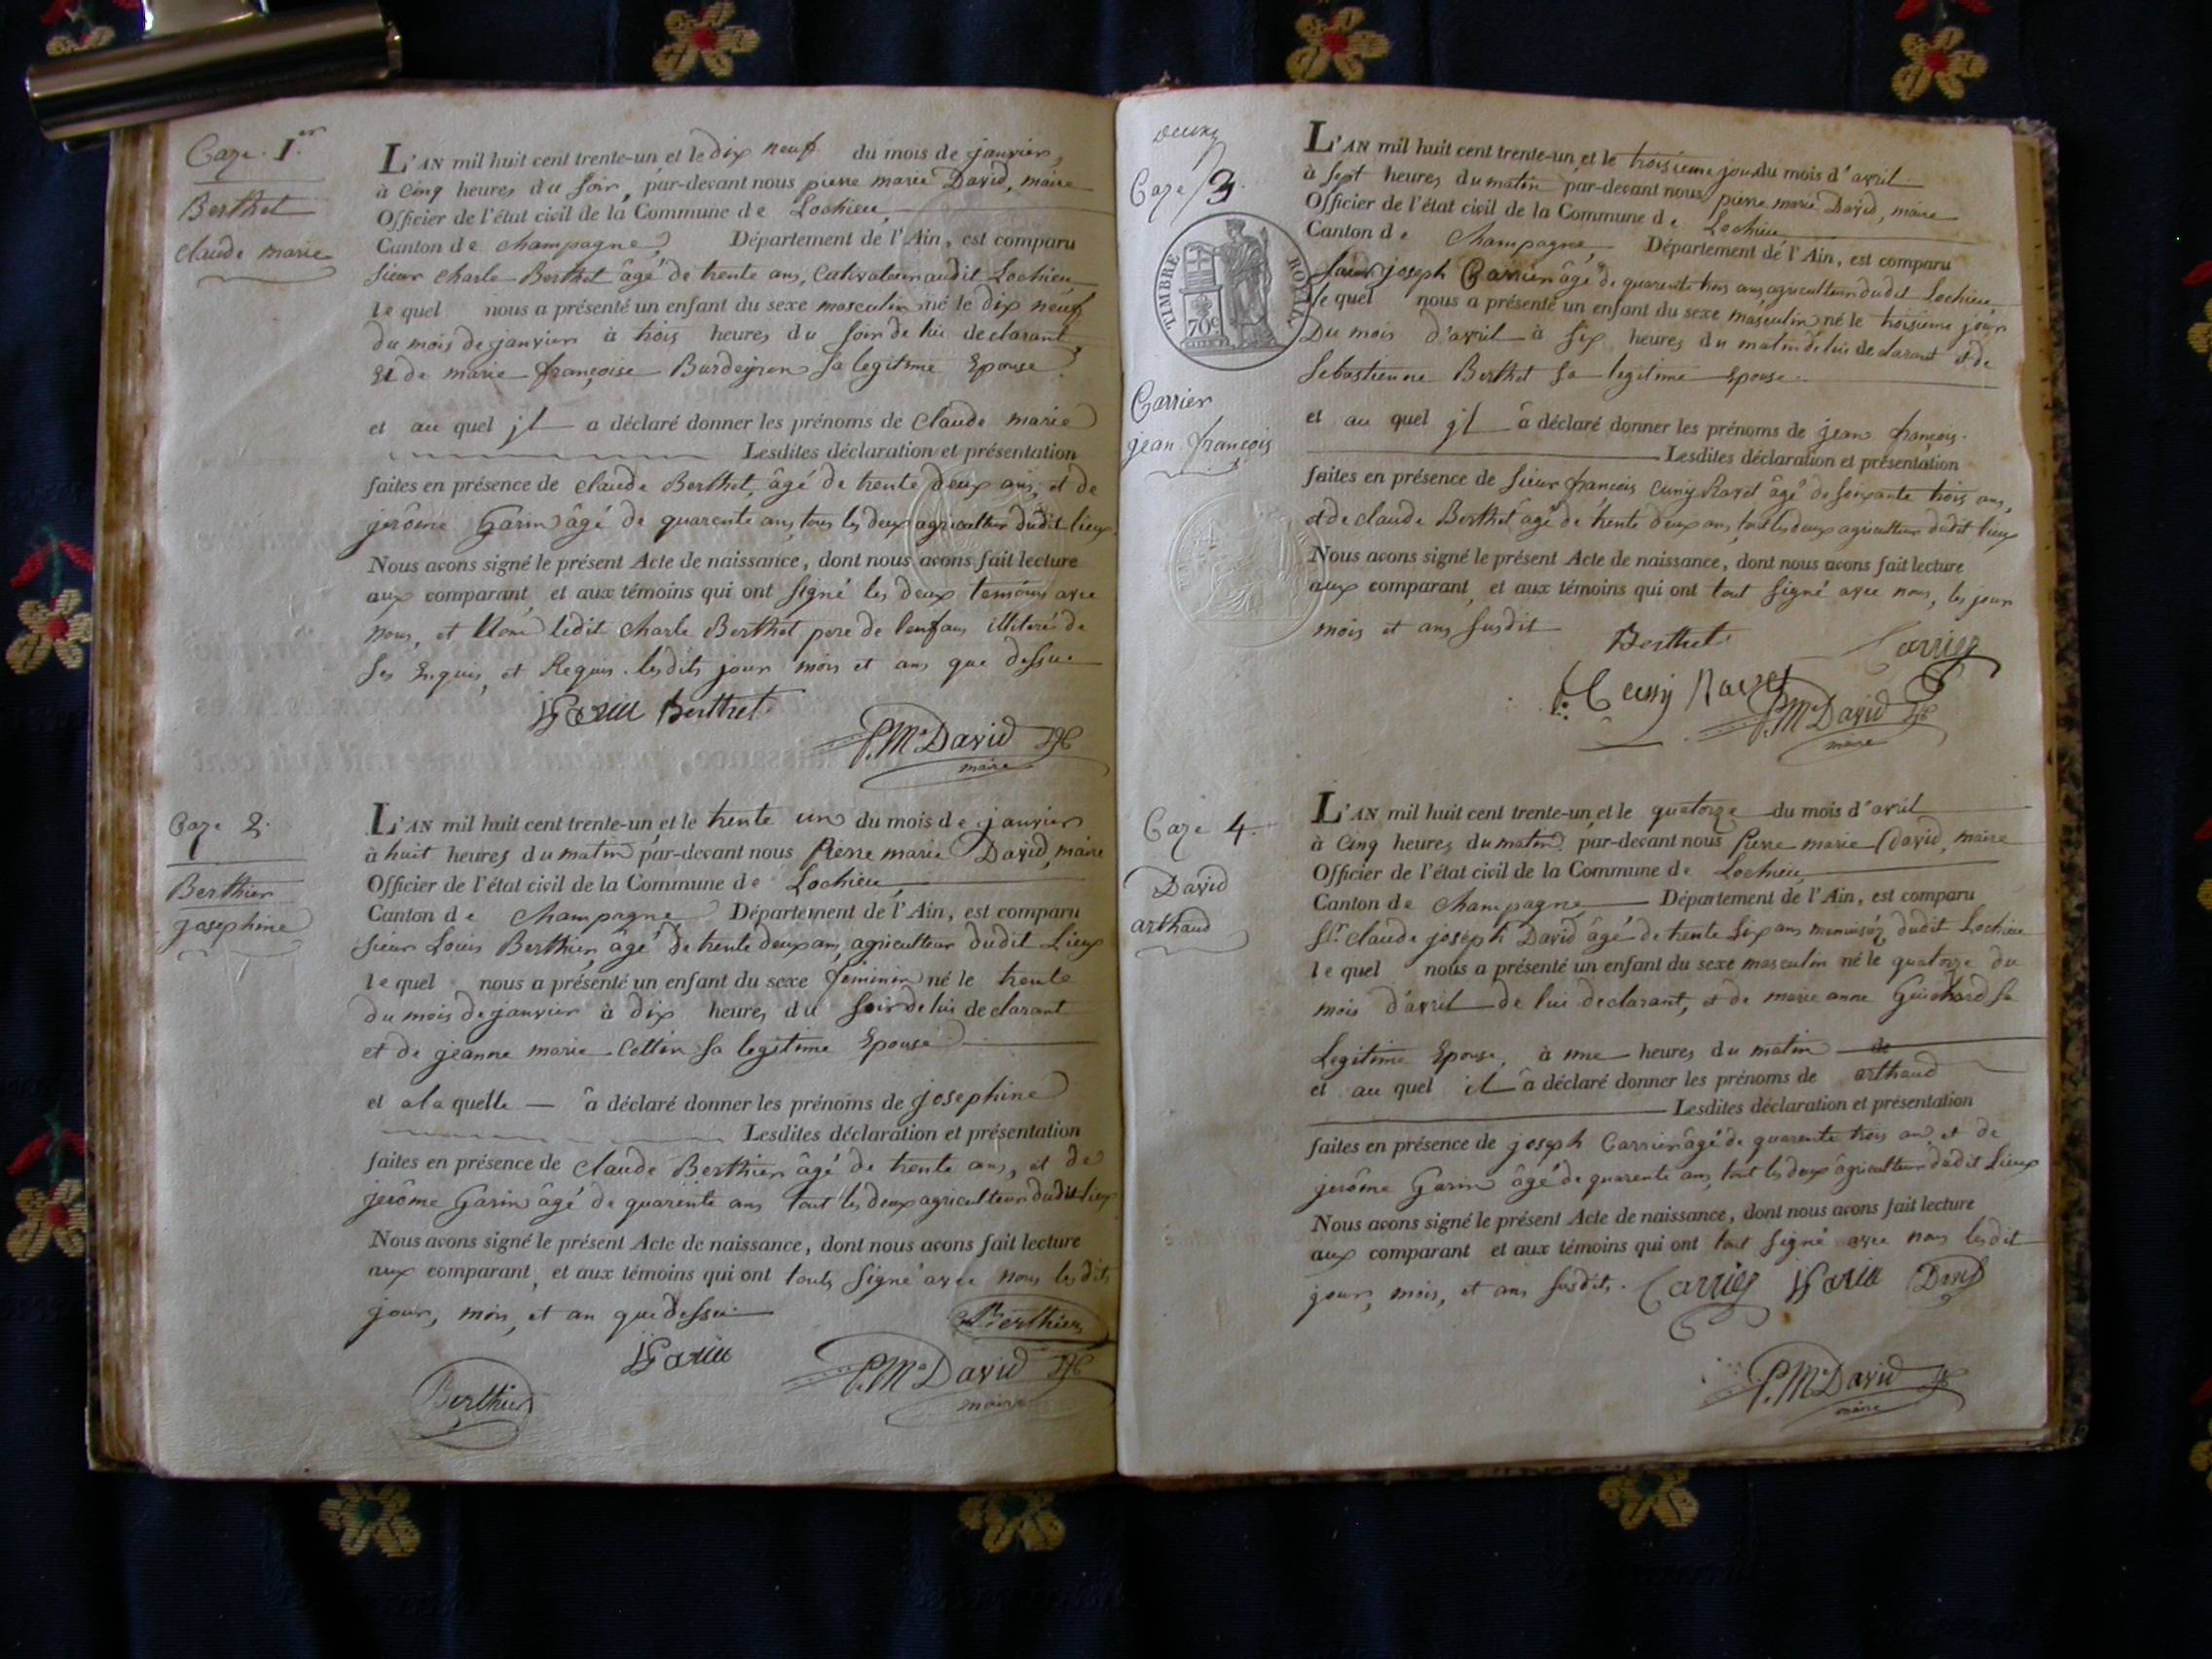 Caze 1.er
Berthet
Claude marie
L'AN mil huit cent trente-un et le dix neuf du mois de janvier,
à cinq heures du soir, par-devant nous pierre marie David, maire
Officier de l'état civil de la Commune de Lochieu,
Canton de Champagne, Département de l'Ain, est comparu
sieur Charle Berthet âgé de trente ans, cultivateur audit Lochieu
lequel nous a présenté un enfant du sexe masculin né le dix neuf
du mois de janvier à trois heures du soir de lui declarant
Et de marie françoise Burdeyron sa legitime Epouse
et au quel jl a déclaré donner les prénoms de Claude marie
Lesdites déclaration et présentation
faites en présence de claude Berthet, âgé de trente deux ans, et de
jerôme Garin âgé de quarente ans, tous les deux agriculteur dudit lieux.
Nous avons signé le présent Acte de naissance, dont nous avons fait lecture
aux comparant, et aux témoins qui ont signé les deux temoins avec
nous, et Non ledit Charle Berthet pere de lenfans illiteré de
ses Enquis, et Requis lesdits jour mois et ans que dessus
Garin Berthet
P.M David
maire
Caze 2.
Berthier
josephine
L'AN mil huit cent trente-un et le trente un du mois de janvier
à huit heures du matin par-devant nous Pierre marie David, maire
Officier de l'état civil de la Commune de Lochieu,
Canton de Champagne Département de l'Ain, est comparu
sieur Louis Berthier âgé de trente deux ans, agriculteur dudit Lieux
lequel nous a présenté un enfant du sexe feminin né le trente
du mois de janvier à dix heures du soir de lui declarant
et de jeanne marie Cottin sa legitime Epouse
et a la quelle a déclaré donner les prénoms de josephine
Lesdites déclaration et présentation
faites en présence de claude Berthier âgé de trente ans, et de
jerôme Garin âgé de quarente ans tout les deux agriculteur dudit lieux
Nous avons signé le présent Acte de naissance, dont nous avons fait lecture
aux comparant, et aux témoins qui ont touts signé avec nous lesdits
jour, mois, et an que dessus
Berthier
Garin
P.M David
maire
Berthier
deux
Caze 3.
TIMBRE ROYAL
70c
Carrier
jean françois
L'AN mil huit cent trente-un et le troisieme jour du mois d'avril
à sept heures du matin par-devant nous pierre marie David, maire
Officier de l'état civil de la Commune de Lochieu
Canton de Champagne, Département de l'Ain, est comparu
sieur joseph Carrier âgé de quarente trois ans agriculteur dudit Lochieu
lequel nous a présenté un enfant du sexe masculin né le troisieme jour
Du mois d'avril à six heures du matin de lui declarant et de
Sebastienne Berthet sa legitime Epouse
et au quel jl a déclaré donner les prénoms de jean françois.
Lesdites déclaration et présentation
faites en présence de sieur françois Cuny Ravet âgé de soixante trois ans,
et de claude Berthet âgé de trente deux ans, tout les deux agriculteur dudit lieux
Nous avons signé le présent Acte de naissance, dont nous avons fait lecture
aux comparant, et aux témoins qui ont tout signé avec nous, les jour
mois et ans susdit
Berthet Carrier
Cuny Ravet
P.M David
maire
Caze 4.
David
arthaud
L'AN mil huit cent trente-un et le quatorze du mois d'avril
à Cinq heures du matin, par-devant nous Pierre marie David, maire
Officier de l'état civil de la Commune de Lochieu,
Canton de Champagne Département de l'Ain, est comparu
Sr. claude joseph David âgé de trente six ans menuisier dudit Lochieu
lequel nous a présenté un enfant du sexe masculin né le quatorze du
mois d'avril de lui declarant, et de marie anne Guichard sa
Legitime Epouse, à une heures du matin de
et au quel il a déclaré donner les prénoms de arthaud
Lesdites déclaration et présentation
faites en présence de joseph Carrier âgé de quarente trois an et de
jerôme Garin âgé de quarente ans, tout les deux agriculteur dudit Lieux
Nous avons signé le présent Acte de naissance, dont nous avons fait lecture
aux comparant et aux témoins qui ont tout signé avec nous lesdit
jour, mois, et ans susdits. Carrier Garin David
P.M David
maire